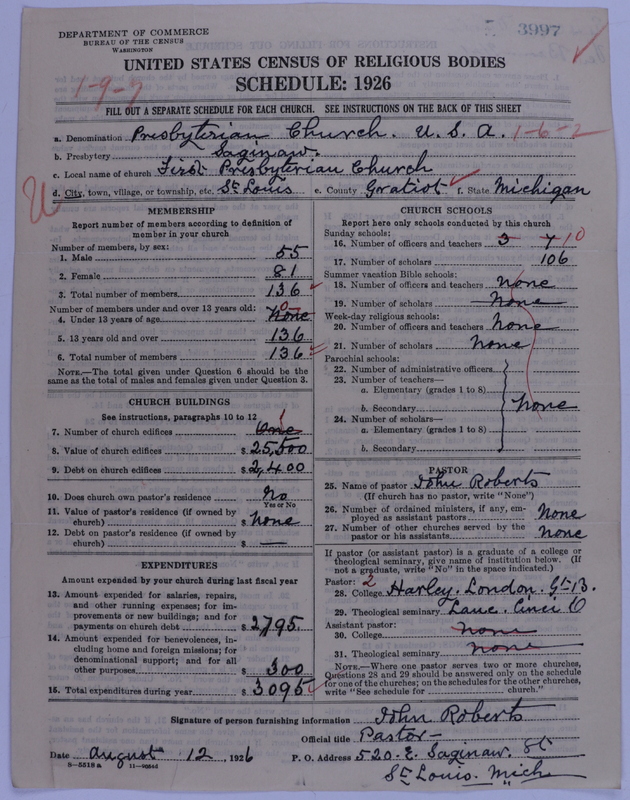 DEPARTMENT OF COMMERCE
BUREAU OF THE CENSUS
WASHINGTON
3997
UNITED STATES CENSUS OF RELIGIOUS BODIES
SCHEDULE: 1926
1-9-7
FILL OUT A SEPARATE SCHEDULE FOR EACH CHURCH. SEE INSTRUCTIONS ON THE BACK OF THIS SHEET
a. Denomination Presbyterian Church. U. S. A. 1-6-2
b. Presbytery Saginaw.
c. Local name of church First Presbyterian Church
d. City, town, village, or township, etc. St Louis e. County Gratiot f. State Michigan
U
MEMBERSHIP
Report number of members according to definition of
member in your church
Number of members, by sex:
1. Male 55
2. Female 81
3. Total number of members 136
Number of members under and over 13 years old:
4. Under 13 years of age None 0
5. 13 years old and over 136
6. Total number of members 136
NOTE.—The total given under Question 6 should be
same as the total of males and females given under Question 3.
CHURCH BUILDINGS
See instructions, paragraphs 10 to 12
7. Number of church edifices One 1
8. Value of church edifices $ 25,500
9. Debt on church edifices $ 2,400
10. Does church own pastor's residence No
Yes or No
11. Value of pastor's residence (if owned by
church) $ None
12. Debt on pastor's residence (if owned by
church) $ —
EXPENDITURES
Amount expended by your church during last fiscal year
13. Amount expended for salaries, repairs,
and other running expenses; for im-
provements or new buildings; and for
payments on church debt $ 2,795
14. Amount expended for benevolences, in-
cluding home and foreign missions; for
denominational support; and for all
other purposes $ 300
15. Total expenditures during year $ 3095
CHURCH SCHOOLS
Report here only schools conducted by this church
Sunday schools:
16. Number of officers and teachers 3 7 10
17. Number of scholars 106
Summer vacation Bible schools:
18. Number of officers and teachers None
19. Number of scholars None
Week-day religious schools:
20. Number of officers and teachers None
21. Number of scholars None
Parochial schools:
22. Number of administrative officers
23. Number of teachers—
a. Elementary (grades 1 to 8)
b. Secondary None
24. Number of scholars—
a. Elementary (grades 1 to 8)
b. Secondary
PASTOR
25. Name of pastor John Roberts
(If church has no pastor, write "None")
26. Number of ordained ministers, if any, em-
ployed as assistant pastors None
27. Number of other churches served by the
pastor or his assistants None
If pastor (or assistant pastor) is a graduate of a college or
theological seminary, give name of institution below. (If
not a graduate, write "No" in the space indicated.)
Pastor: 2
28. College Harley. London. Gt B.
29. Theological seminary Lane. Cinci O
Assistant pastor:
30. College None
31. Theological seminary None
NOTE.—Where one pastor serves two or more churches,
Questions 28 and 29 should be answered only on the schedule
for one of the churches; on the schedules for the other churches,
write "See schedule for church."
Signature of person furnishing information John Roberts
Official title Pastor—
Date August 12, 1926 P. O. Address 520. E. Saginaw. St
St Louis. Mich
8—5518 a